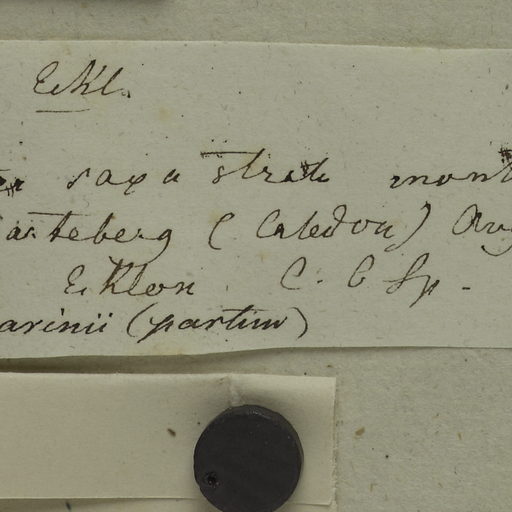 Eckl.
saxa strata mont
arteberg (Caledon) Aug
Ecklon. C. b. Sp.
arinii (partim)